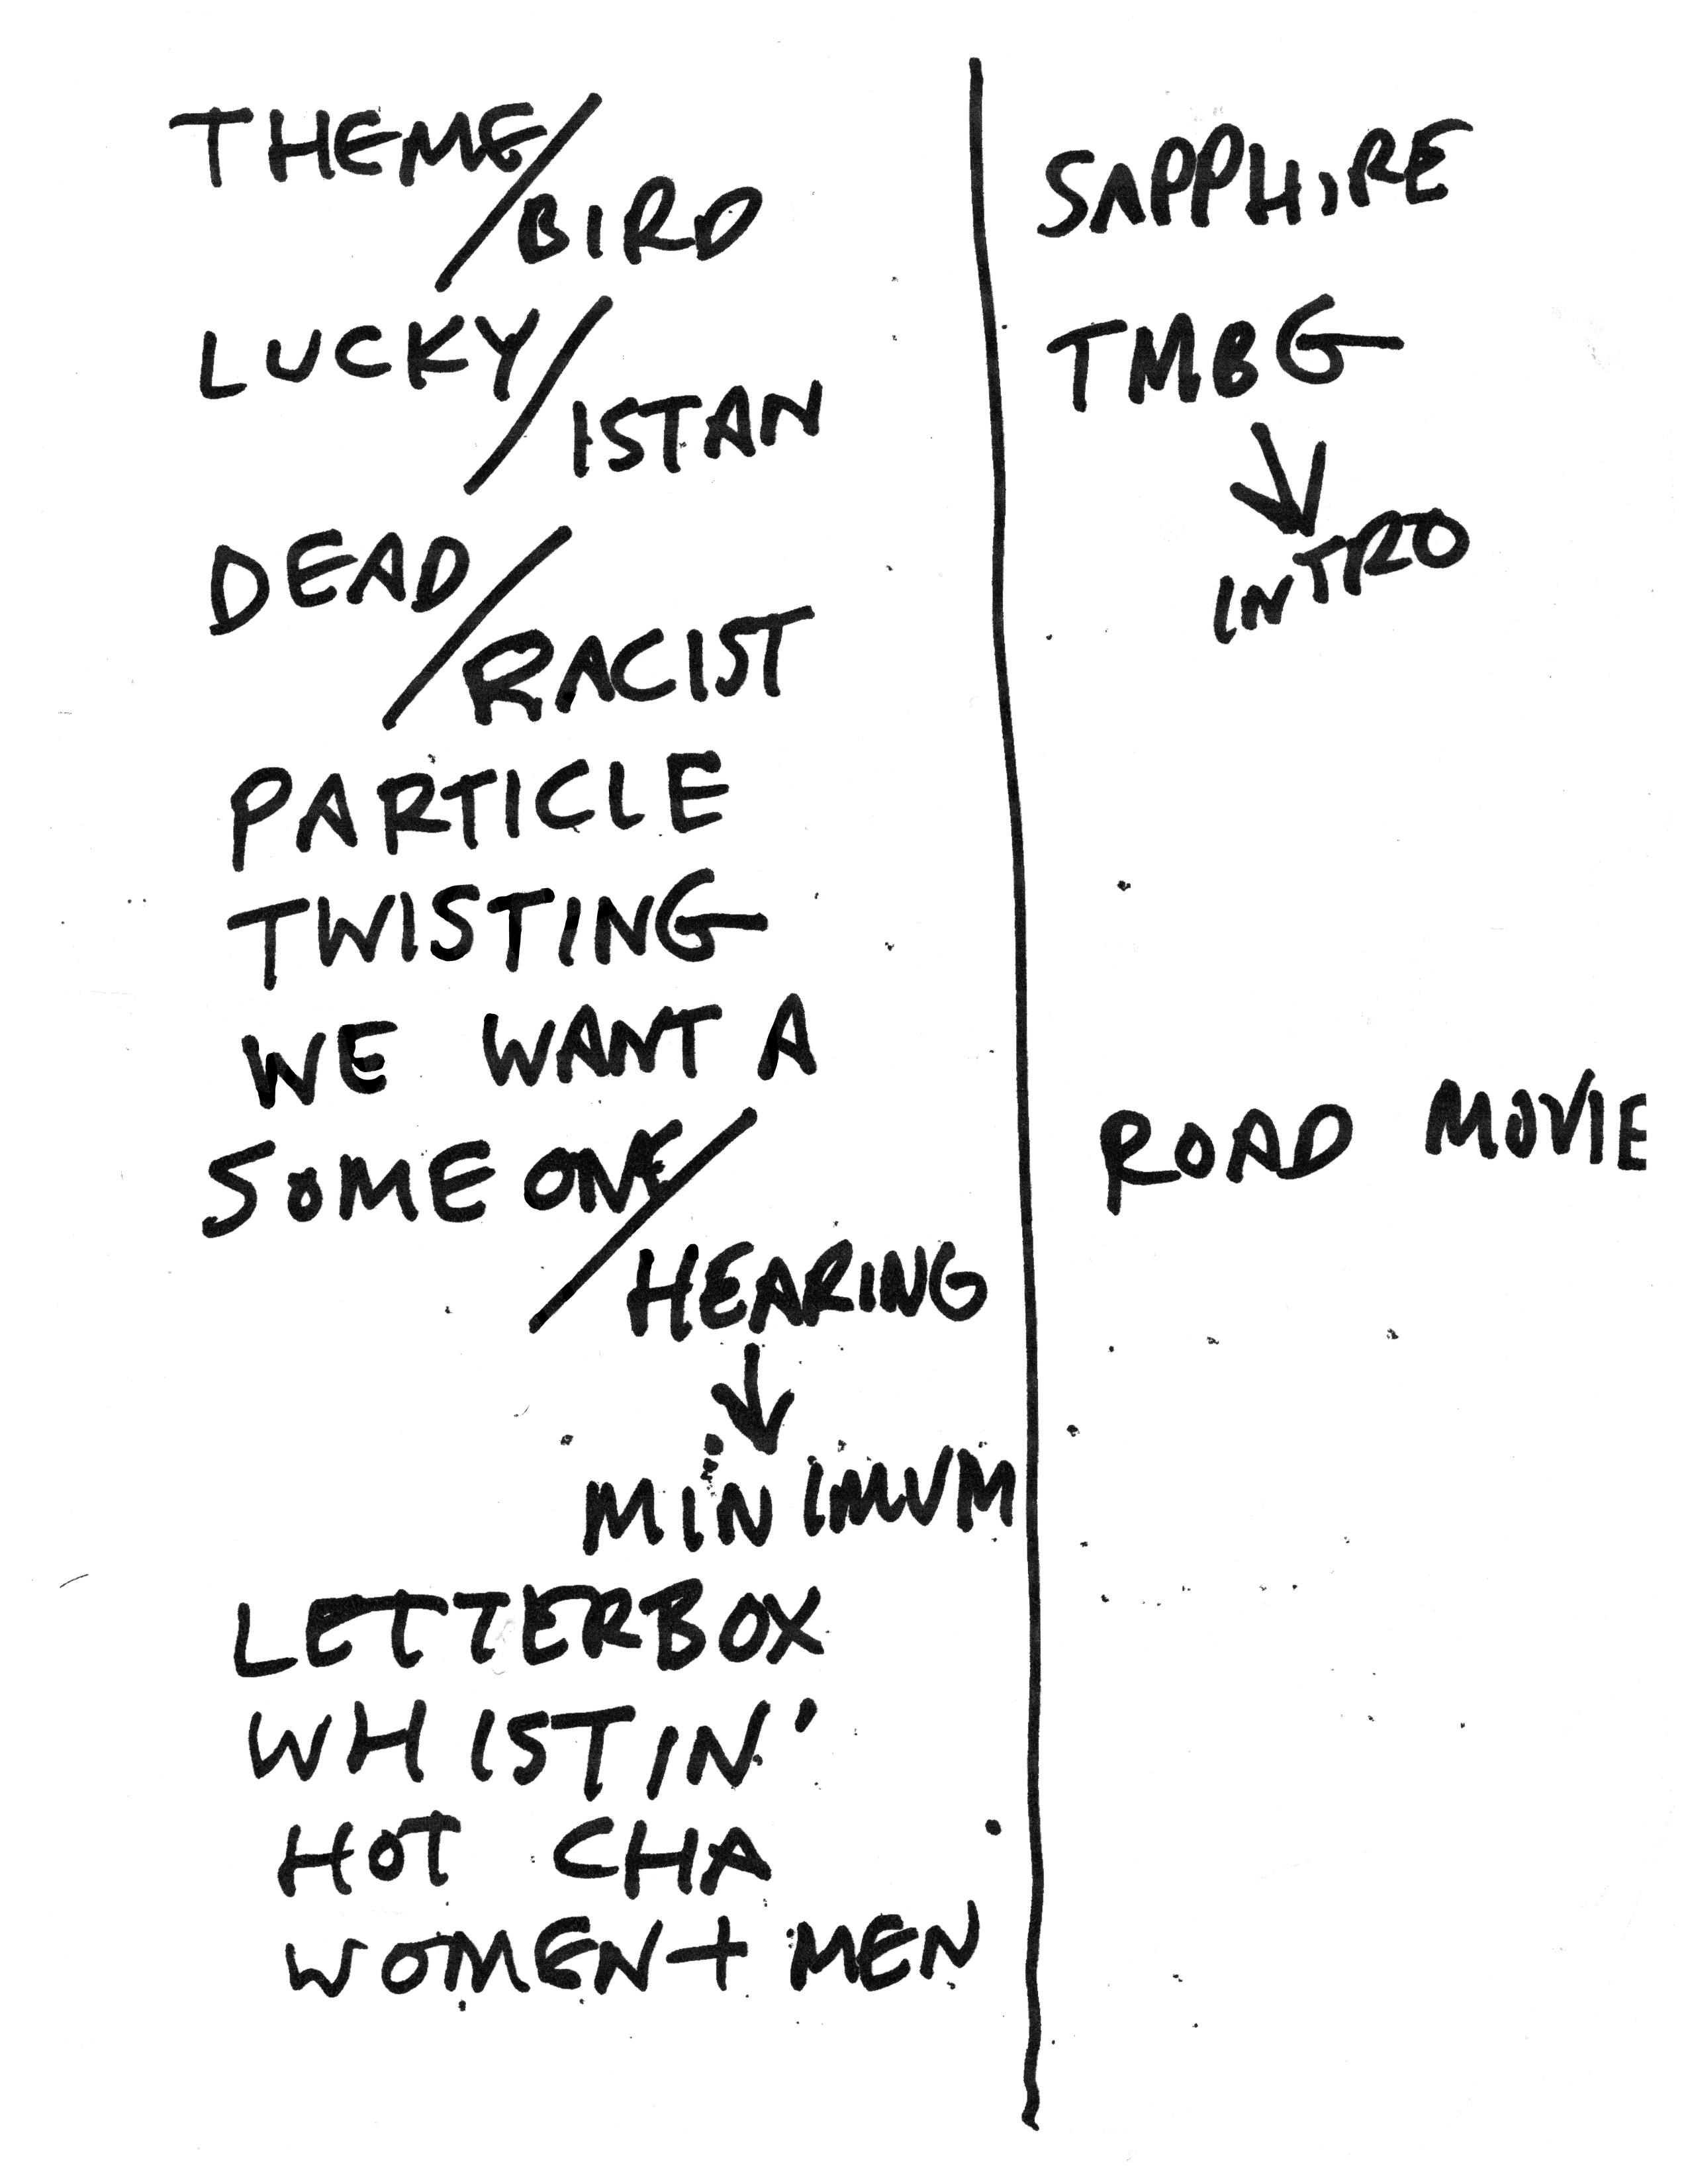 THEME/
BIRD
LUCKY/
ISTAN
DEAD/
RACIST
PARTICLE
TWISTING
WE WANT A
SOMEONE/
HEARING
MINIMUM
LETTERBOX
WHISTIN'
HOT CHA
WOMEN + MEN
SAPPHIRE
TMBG
INTRO
ROAD MOVIE